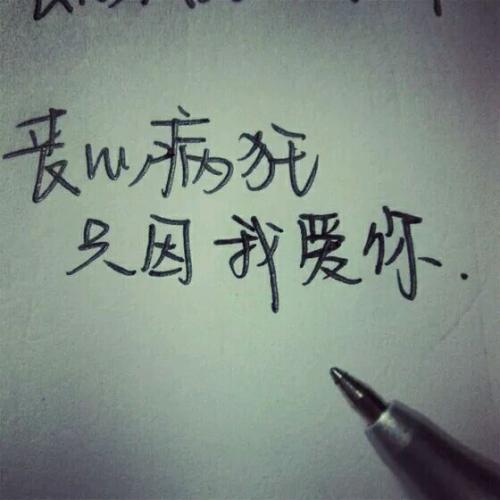 丧心病狂
只因我爱你.